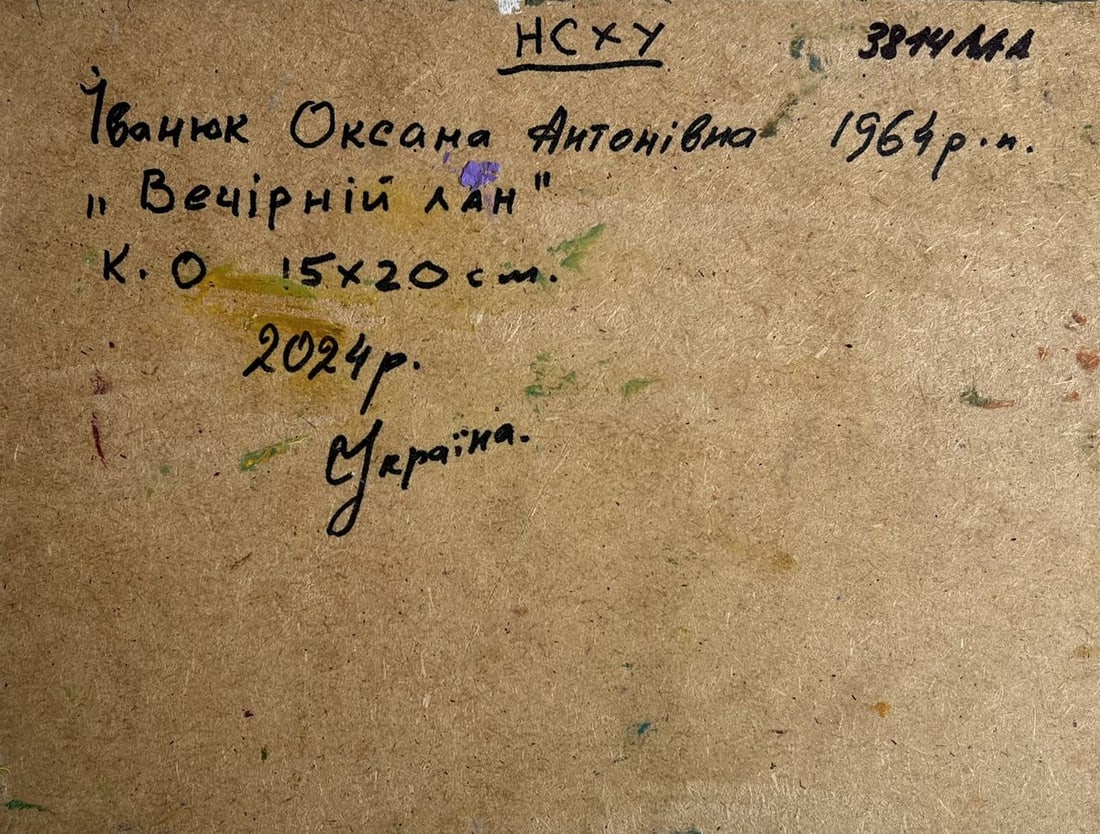 НСХУ
Іванюк Оксана Антонівна 1964 р.н.
„Вечірній лан"
К. О 15х20 см.
2024 р.
Україна.